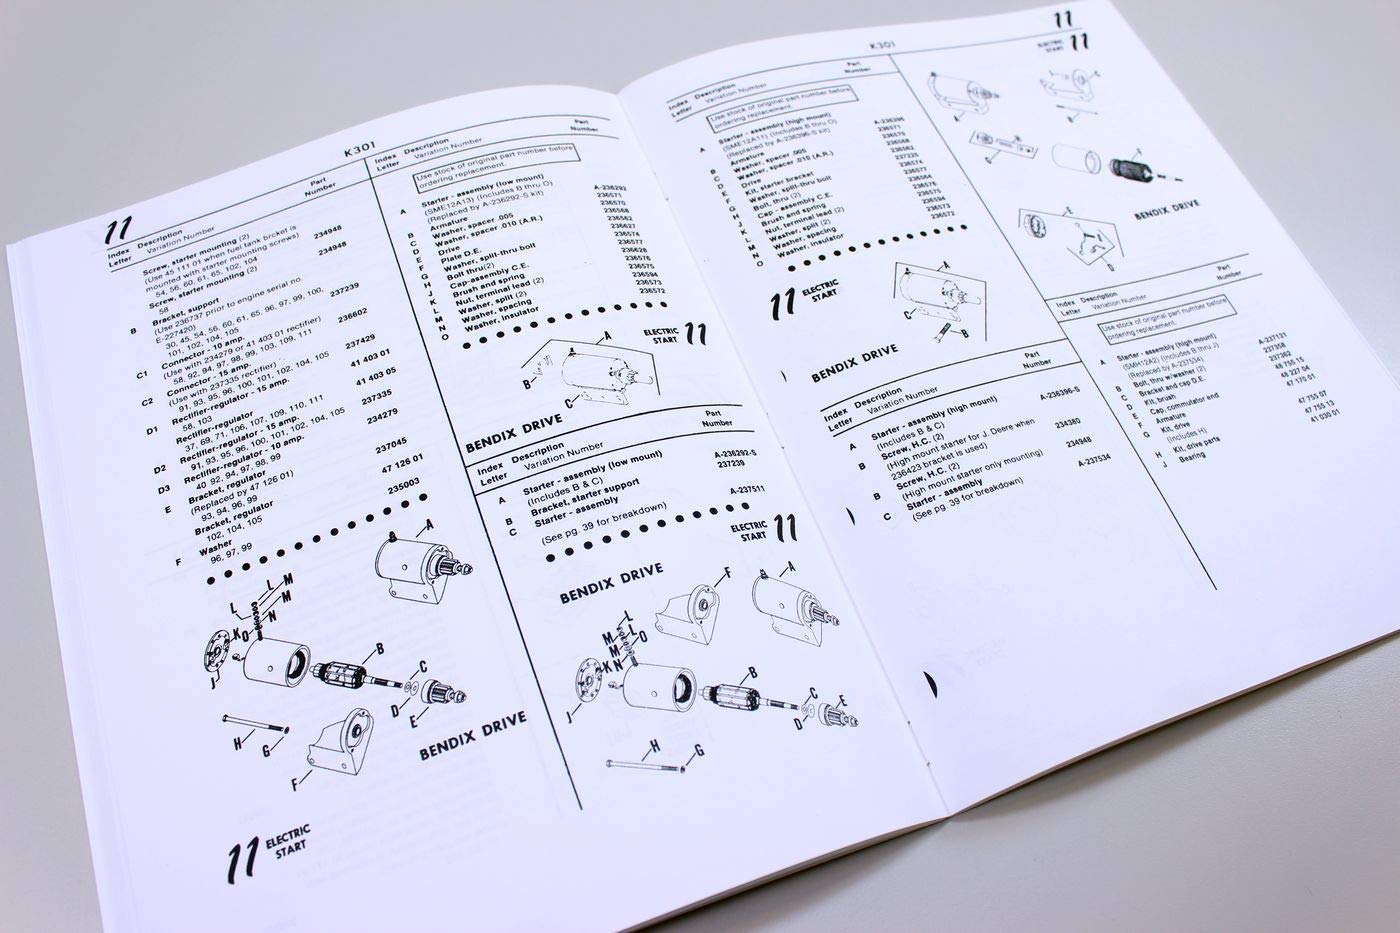 11
K301
Index Letter
Description
Variation Number
Part Number
Screw, starter mounting (2)
(Use 45 111 01 when fuel tank brcket is
mounted with starter mounting screws)
54, 56, 60, 61, 65, 102, 104
234948
Screw, starter mounting (2)
58
234948
B Bracket, support
(Use 236737 prior to engine serial no.
E-227420)
30, 45, 54, 56, 60, 61, 65, 96, 97, 99, 100,
101, 102, 104, 105
237239
C1 Connector - 10 amp.
(Use with 234279 or 41 403 01 rectifier)
58, 92, 94, 97, 98, 99, 103, 109, 111
236602
C2 Connector - 15 amp.
(Use with 237335 rectifier)
91, 93, 95, 96, 100, 101, 102, 104, 105
237429
D1 Rectifier-regulator - 15 amp.
58, 103
41 403 01
Rectifier-regulator
37, 69, 71, 106, 107, 109, 110, 111
41 403 05
D2 Rectifier-regulator - 15 amp.
91, 93, 95, 96, 100, 101, 102, 104, 105
237335
D3 Rectifier-regulator - 10 amp.
40 92, 94, 97, 98, 99
234279
E Bracket, regulator
(Replaced by 47 126 01)
93, 94, 96, 99
237045
Bracket, regulator
102, 104, 105
47 126 01
F Washer
96, 97, 99
235003
A
L
M
L
M
N
K
O
J
B
C
D
E
H
G
F
BENDIX DRIVE
11 ELECTRIC
START
Index Letter
Description
Variation Number
Part Number
Use stock of original part number before
ordering replacement.
A Starter - assembly (low mount)
(SME12A13) (Includes B thru O)
(Replaced by A-236292-S kit)
A-236292
B Armature 236571
C Washer, spacer .005 236570
D Washer, spacer .010 (A.R.) 236568
E Drive 236562
F Plate D.E. 236627
G Washer, split-thru bolt 236574
H Bolt thru(2) 236577
J Cap-assembly C.E. 236628
K Brush and spring 236576
L Nut, terminal lead (2) 236575
M Washer, split (2) 236594
N Washer, spacing 236573
O Washer, insulator 236572
ELECTRIC
START 11
A
B
C
BENDIX DRIVE
Index Letter
Description
Variation Number
Part Number
A Starter - assembly (low mount)
(Includes B & C)
A-236292-S
B Bracket, starter support 237239
C Starter - assembly
(See pg. 39 for breakdown)
A-237511
ELECTRIC
START 11
BENDIX DRIVE
F
A
L
M
L
M
O
K
N
J
B
C
D
E
H
G
K301
11
Index Letter
Description
Variation Number
Part Number
Use stock of original part number before
ordering replacement.
A Starter - assembly (high mount)
(SME12A11) (Includes B thru O)
(Replaced by A-236396-S kit)
A-236396
B Armature 236571
C Washer, spacer .005 236570
D Washer, spacer .010 (A.R.) 236568
E Drive 236562
F Kit, starter bracket 237225
G Washer, split-thru bolt 236574
H Bolt, thru (2) 236577
J Cap - assembly C.E. 236564
K Brush and spring 236576
L Nut, terminal lead (2) 236575
M Washer, split (2) 236594
N Washer, spacing 236573
O Washer, insulator 236572
11 ELECTRIC
START
A
B
BENDIX DRIVE
Index Letter
Description
Variation Number
Part Number
A Starter - assembly (high mount)
(Includes B & C)
A-236396-S
B Screw, H.C. (2)
(High mount starter for J. Deere when
236423 bracket is used)
234380
B Screw, H.C. (2)
(High mount starter only mounting)
234948
C Starter - assembly
(See pg. 39 for breakdown)
A-237534
ELECTRIC
START 11
C
E
D
BENDIX DRIVE
Index Letter
Description
Variation Number
Part Number
Use stock of original part number before
ordering replacement.
A Starter - assembly (high mount)
(SMH12A2) (Includes B thru J)
(Replaced by A-237534)
A-237131
B Bolt, thru w/washer (2) 237358
C Bracket and cap D.E. 237362
D Kit, brush 48 755 15
E Cap, commutator end 48 227 04
F Armature 47 170 01
G Kit, drive
(Includes H)
47 755 07
H Kit, drive parts 47 755 13
J Bearing 41 030 01